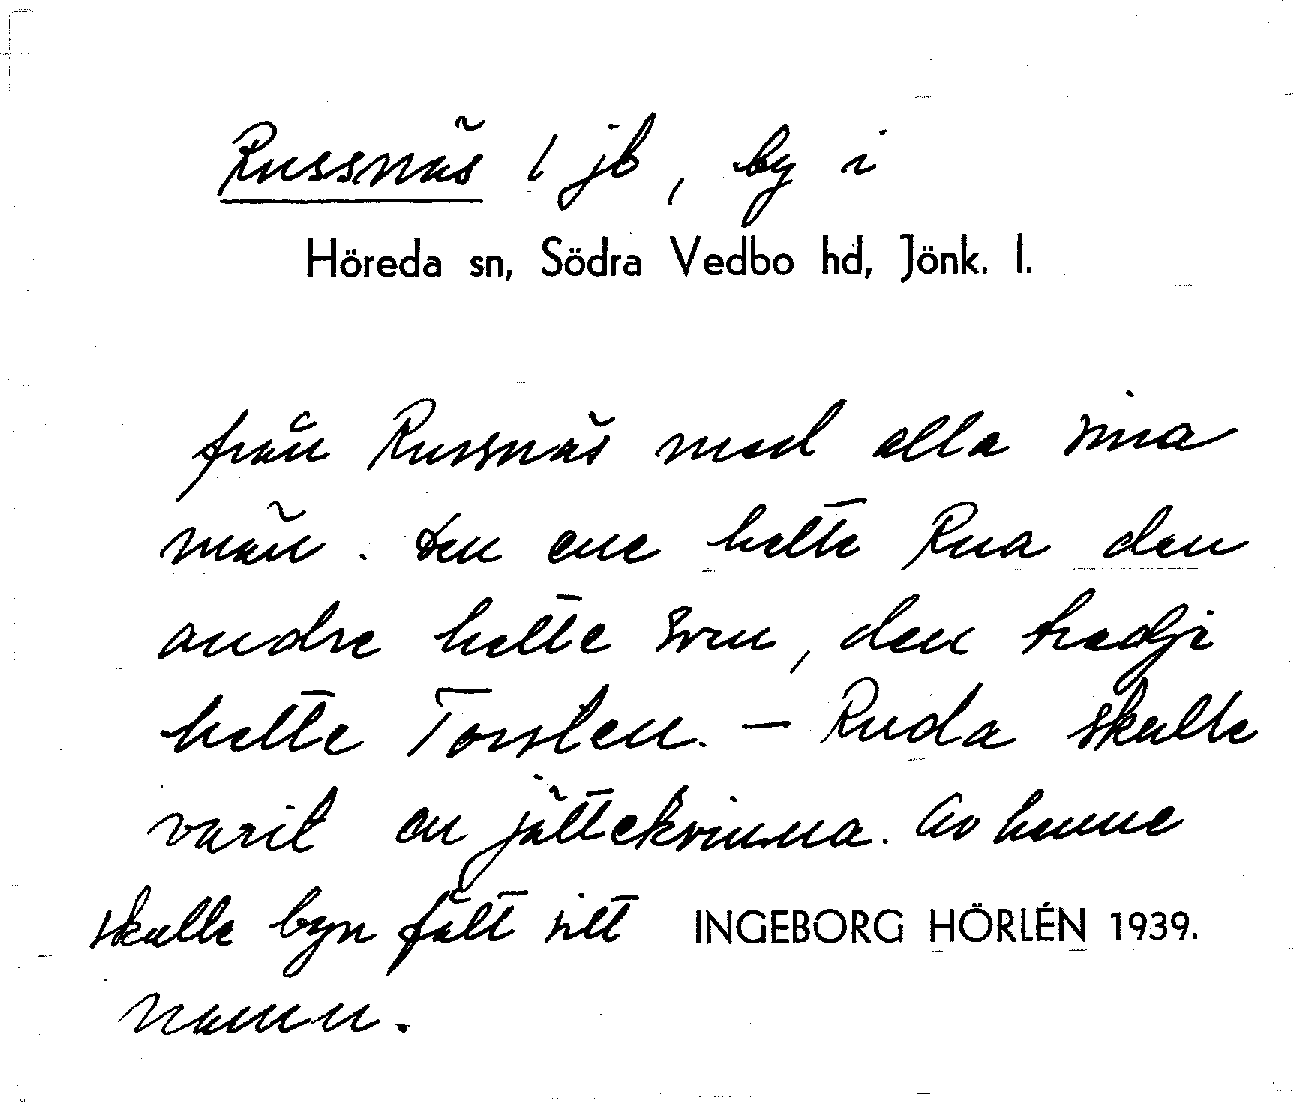 Russnäs 1 jb, by i
Höreda sn, Södra Vedbo hd, Jönk. l.
från Russnäs med alla sina
män. Den ene hette Rua den
andre hette Sven, den tredje
hette Torsten. — Ruda skulle
varit en jättekvinna. Av henne
skulle byn fått sitt INGEBORG HÖRLÉN 1939.
namn.